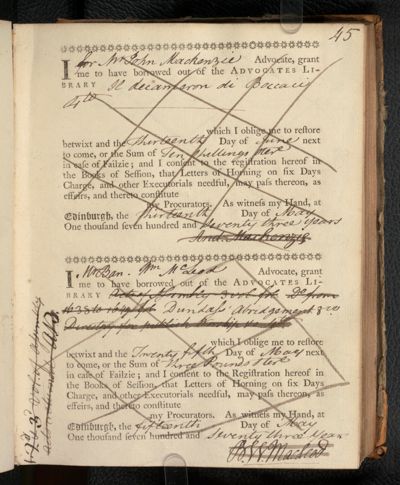 45
I for Mr John Mackenzie Advocate, grant
me to have borrowed out of the ADVOCATES LI-
BRARY Il decameron di Boccacci
4to
which I oblige me to restore
betwixt and the thirteenth Day of June next
to come, or the Sum of Ten Shillings ster
in case of Failzie; and I consent to the registration hereof in
the Books of Session, that Letters of Horning on six Days
Charge, and other Executorials needful, may pass thereon, as
effeirs, and thereto constitute
my Procurators. As witness my Hand, at
Edinburgh, the thirteenth Day of May
One thousand seven hundred and seventy three years
Mackenzie
I Wm McLeod Advocate, grant
me to have borrowed out of the ADVOCATES LI-
BRARY Acts of
Dundass' Abridgement 8vo
which I oblige me to restore
betwixt and the Twenty fifth Day of May next
to come, or the Sum of Five Pounds ster
in case of Failzie; and I consent to the Registration hereof in
the Books of Session, that Letters of Horning on six Days
Charge, and other Executorials needful, may pass thereon, as
effeirs, and thereto constitute
my Procurators. As witness my Hand, at
Edinburgh, the fifteenth Day of May
One thousand seven hundred and seventy three years
Macleod